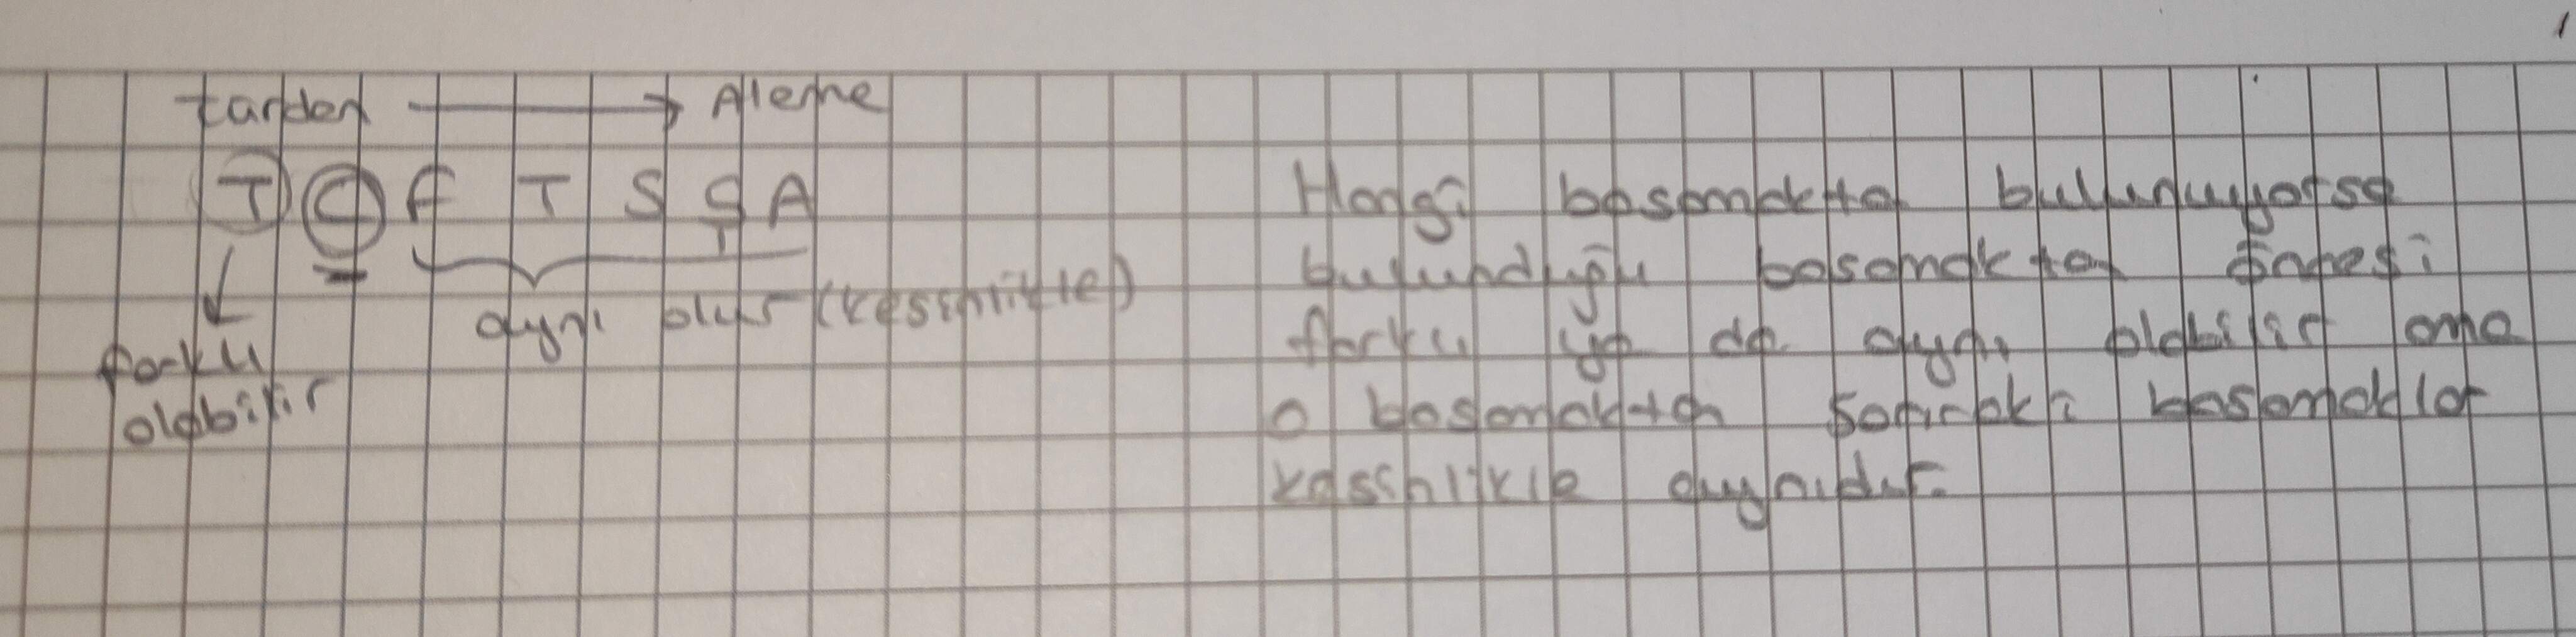 türden → Aleme
T C F T S Ş A
aynı olur (kesinlikle)
farklı
olabilir
Hangi basamakta bulunuyorsa
bulunduğu basamaktan öncesi
farklı ya da aynı olabilir ama
o basamaktan sonraki basamaklar
kesinlikle aynıdır.